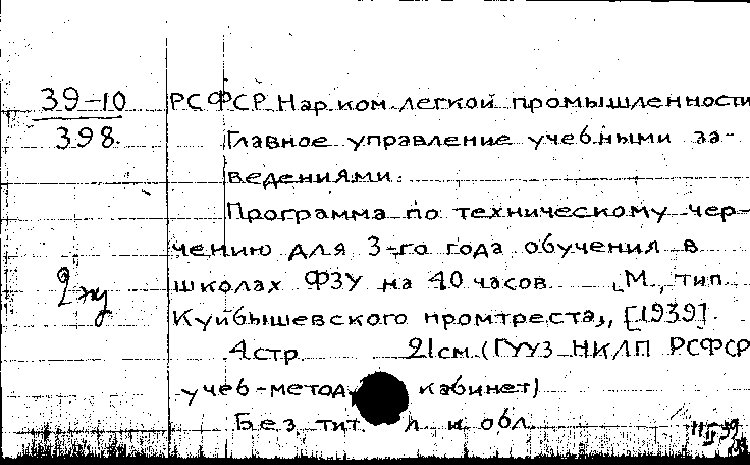 39-10
398.
РСФСР Нар.ком.легкой промышленности
Главное управление учебными за-
ведениями.
Программа по техническому чер-
чению для 3-го года обучения в
школах ФЗУ на 40 часов. [М., тип.
Куйбышевского промтреста], [1939].
4 стр. 21 см. (ГУУЗ НКЛП РСФСР
учеб-метод. кабинет)
Без тит. л. и обл.
2 экз